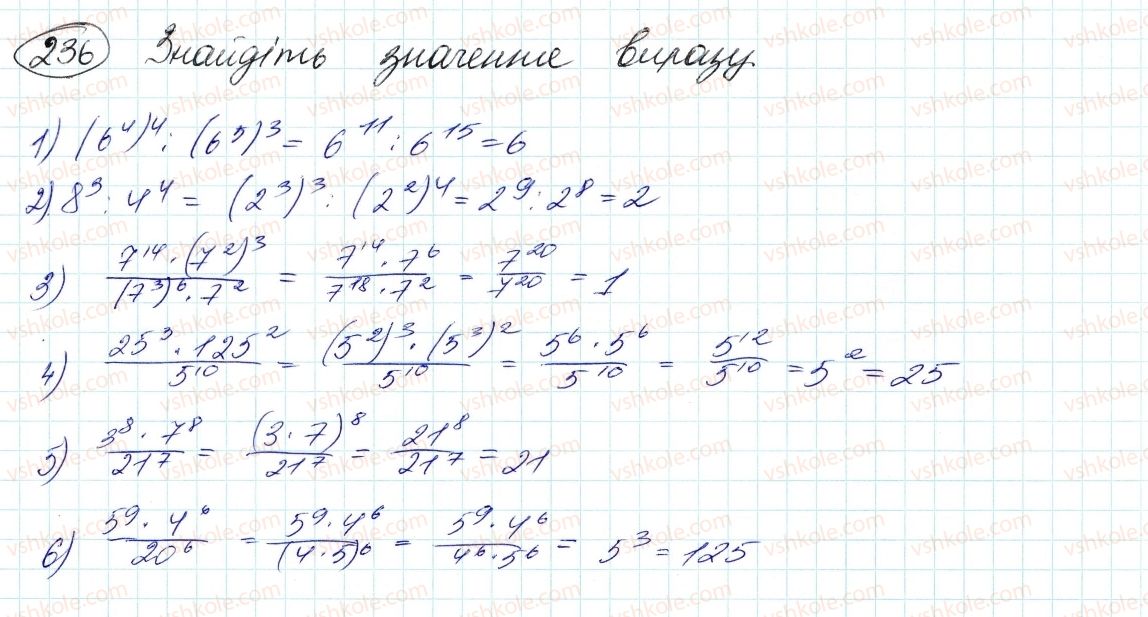 236 Знайдіть значення виразу.
1) (6^4)^4 : (6^5)^3 = 6^11 : 6^15 = 6
2) 8^3 : 4^4 = (2^3)^3 : (2^2)^4 = 2^9 : 2^8 = 2
3) (7^14 · (7^2)^3) / ((7^3)^6 · 7^2) = (7^14 · 7^6) / (7^18 · 7^2) = 7^20 / 7^20 = 1
4) (25^3 · 125^2) / 5^10 = ((5^2)^3 · (5^3)^2) / 5^10 = (5^6 · 5^6) / 5^10 = 5^12 / 5^10 = 5^2 = 25
5) (3^8 · 7^8) / 21^7 = (3 · 7)^8 / 21^7 = 21^8 / 21^7 = 21
6) (5^9 · 4^6) / 20^6 = (5^9 · 4^6) / (4 · 5)^6 = (5^9 · 4^6) / (4^6 · 5^6) = 5^3 = 125